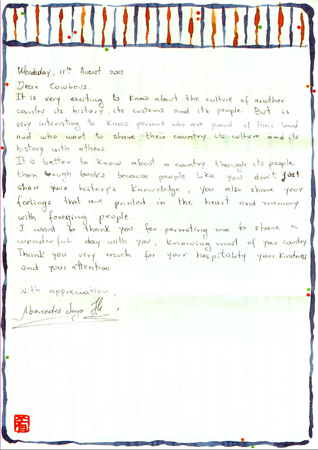 Wendsday, 11th August 2005
Dear Cowboys.
It is very exciting to know about the culture of another
country its history, its customs and its people. But is
very interesting to know persons who are proud of their land
and who want to share their country its culture and its
history with others.
It is better to know about a country though its people
than trough books because people like you don't just
share your historys knowledge, you also share your
feelings that are printed in the heart and memory
with foreging people.
I want to thank you for permiting me to share a
wonderful day with you, knowing most of your country.
Thank you very much for your hospitality your kindness
and your attention
With appreciation,
Mercedes